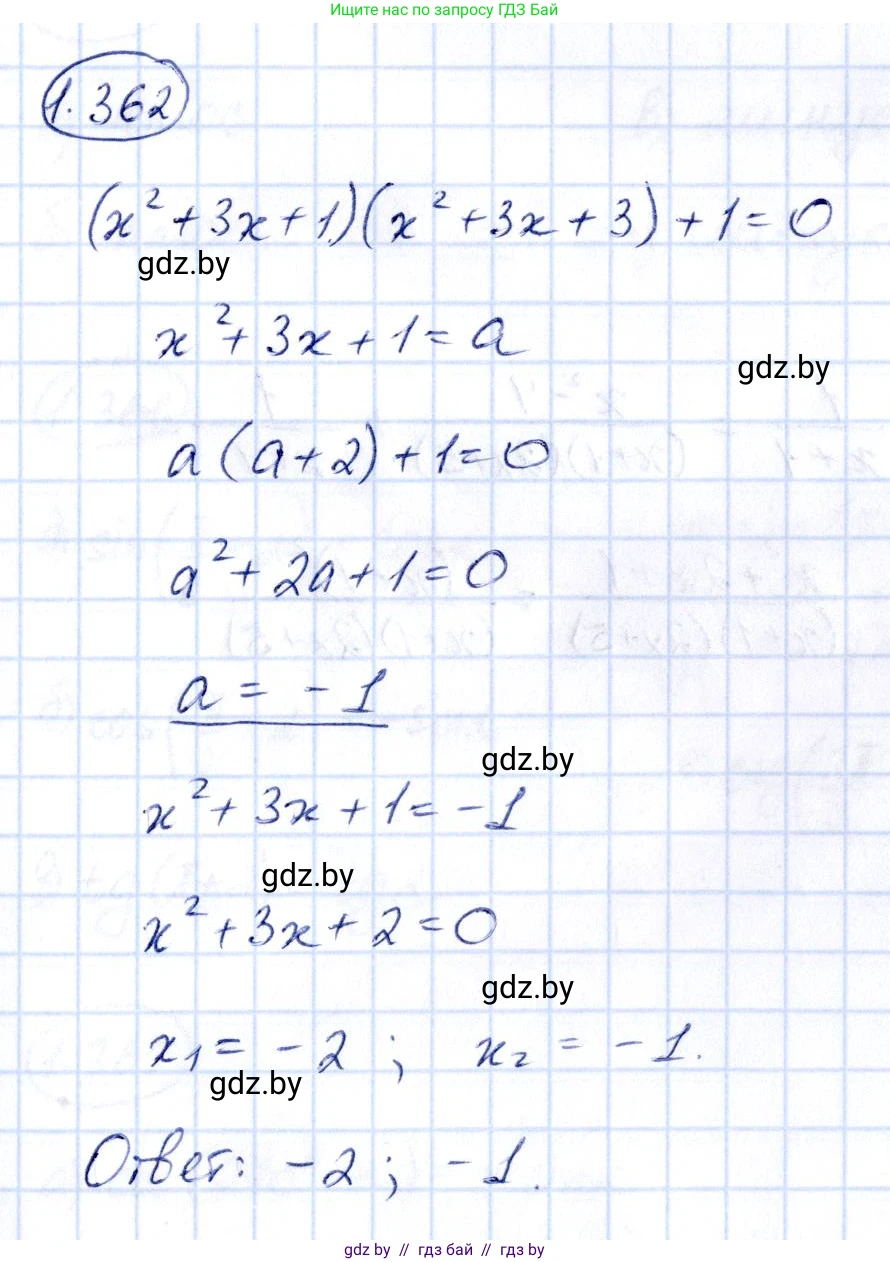 Ищите нас по запросу ГДЗ Бай
1.362
(x² + 3x + 1)(x² + 3x + 3) + 1 = 0
gdz.by
x² + 3x + 1 = a
gdz.by
a (a + 2) + 1 = 0
a² + 2a + 1 = 0
a = - 1
gdz.by
x² + 3x + 1 = - 1
gdz.by
x² + 3x + 2 = 0
gdz.by
x₁ = - 2 ; x₂ = - 1.
gdz.by
Ответ: - 2 ; - 1.
gdz by // гдз бай // gdz by